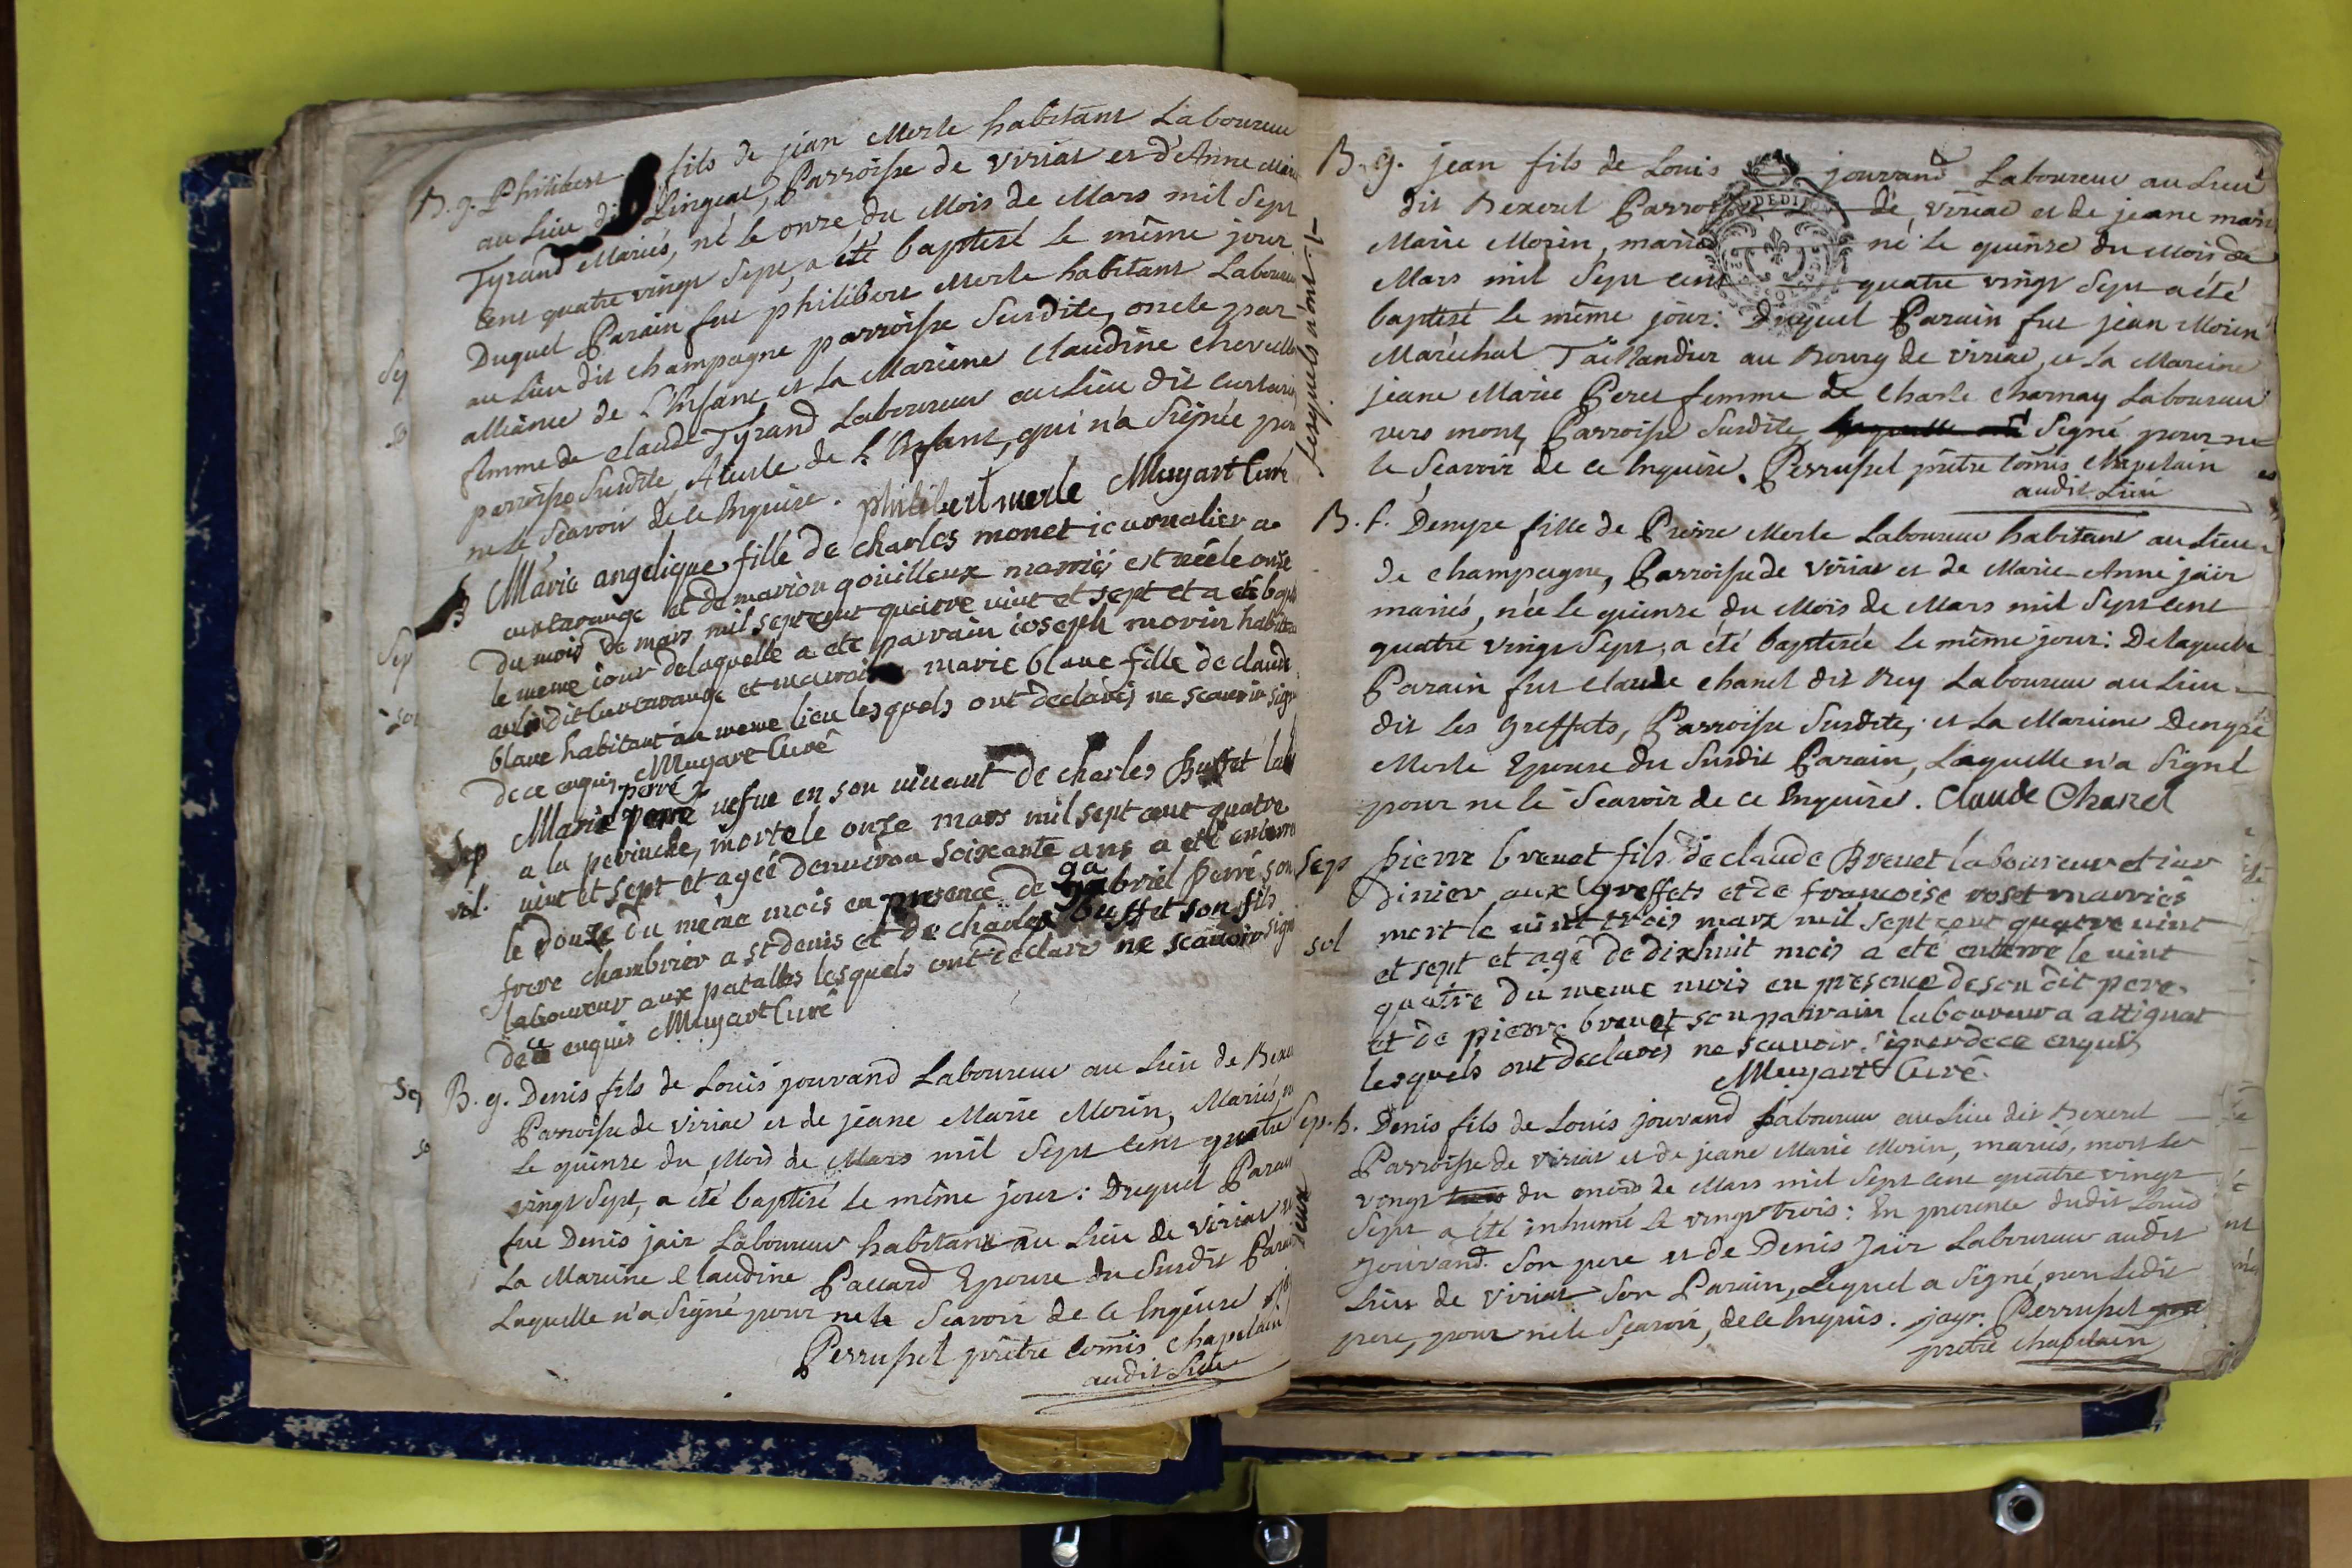 B. g. Philibert fils de jean Merle habitant Laboureur
au Lieu dit Lingeat, Parroisse de viriat et d'Anne Marie
Tyrand Mariés, né le onze du Mois de Mars mil Sept
Cent quatre vingt Sept, a été baptisé le même jour
Duquel Parain fut philibert Merle habitant Laboureur
au Lieu dit champagne parroisse Susdite, oncle par
alliance de L'Enfant et La Mareine Claudine chevallie
femme de claude Tyrand Laboureur au Lieu dit
parroisse Susdite, de L'Enfant, qui n'a Signée pour
ne le Scavoir de ce Enquise. philibert merle Muyart Curé
B Marie angelique fille de charles monet iournalier a
curtarange et de marion gouilleux marriés est néele onze
du mois de mars mil sept cent quatre vint et sept et a été bapt
le meme iour delaquelle a ete parrain ioseph morin habitan
au lieu dit Curtarange et maraine marie blanc fille de claude
blanc habitant au meme lieu lesquels ont declarés ne scauoir sign
de ce enquis Muyart Curé
perré
Sep Marie perré vefue en son uiuant de charles Buffet lab
a la peruche, morte le onze mars mil sept cent quatre
vil. uint et sept et ageé denuiron soixante ans a été enterré
le douze du meme mois en presence de gabriel perré son
ga
frere chambrier a st denis et de charles buffet son fils
laboureur aux patalles lesquels ont declaré ne scauoir sign
de ce enquis Muyart Curé
B. g. Denis fils de Louis jouvand Laboureur au Lieu de Bexe
Parroisse de viriat et de jeane Marie Morin, Mariés, n
Le quinze du Mois de Mars mil Sept Cent quatre
vingt Sept, a été baptisé le même jour: Duquel Parain
fut Denis jair Laboureur habitant au Lieu de viriat et
La Mareine Claudine Paccard Epouse du Susdit Parain
Laquelle n'a Signé pour ne le Scavoir de ce Enquise
Perrussel prêtre Comis Chapelain
audit Lieu
lesquels n'ont
B. g. jean fils de Louis jouvand Laboureur au Lieu
dit Bexerel Parroisse de viriat et de jeane mari
Marie Morin, mariés né le quinze du Mois de
Mars mil Sept cent quatre vingt Sept a été
baptisé le même jour: Duquel Parain fut jean Morin
Maréchal Taillandier au Bourg de viriat, et la Mareine
jeane Marie Peret femme de Charle Charnay Laboureur
vers mont, Parroisse Susdite, Signé pour ne
le Scavoir de ce Enquise. Perrussel prêtre Comis Chapelain
audit Lieu
B. f. Denyse fille de Pierre Merle Laboureur habitant au Lieu
de champagne, Parroisse de viriat et de Marie Anne jair
mariés, née le quinze du Mois de Mars mil Sept cent
quatre vingt Sept, a été baptisée le même jour: De laquelle
Parain fut claude chanel dit Rey Laboureur au Lieu
dit les greffets, Parroisse Susdite, et La Mareine Denyse
Merle Epouse du Susdit Parain, Laquelle n'a Signé
pour ne le Scavoir de ce Enquise. Claude Chanel
Sep pierre breuet fils de claude Breuet laboureur et iar
dinier aux greffets et de francoise roset marriés
sol mort le uint trois mars mil sept cent quatre uint
et sept et agé de dixhuit mois a eté enterré le uint
quatre du meme mois en presence de son dit pere
et de pierre breuet son parrain laboureur a attignat
lesquels ont declarés ne scauoir signer de ce enquis
Muyart Curé
Sep. h. Denis fils de Louis jouvand Laboureur au Lieu dit Bexerel
Parroisse de viriat et de jeane Marie Morin, mariés, mort le
vingt trois du mois de Mars mil Sept cent quatre vingt
Sept a été inhumé le vingt trois: En presence dudit Louis
jouvand Son pere et de Denis Jair Laboureur audit
Lieu de viriat Son Parain, Lequel a Signé, non Ledit
pere, pour ne le Scavoir, de ce Enquis. jayr. Perrussel
prêtre chapelain